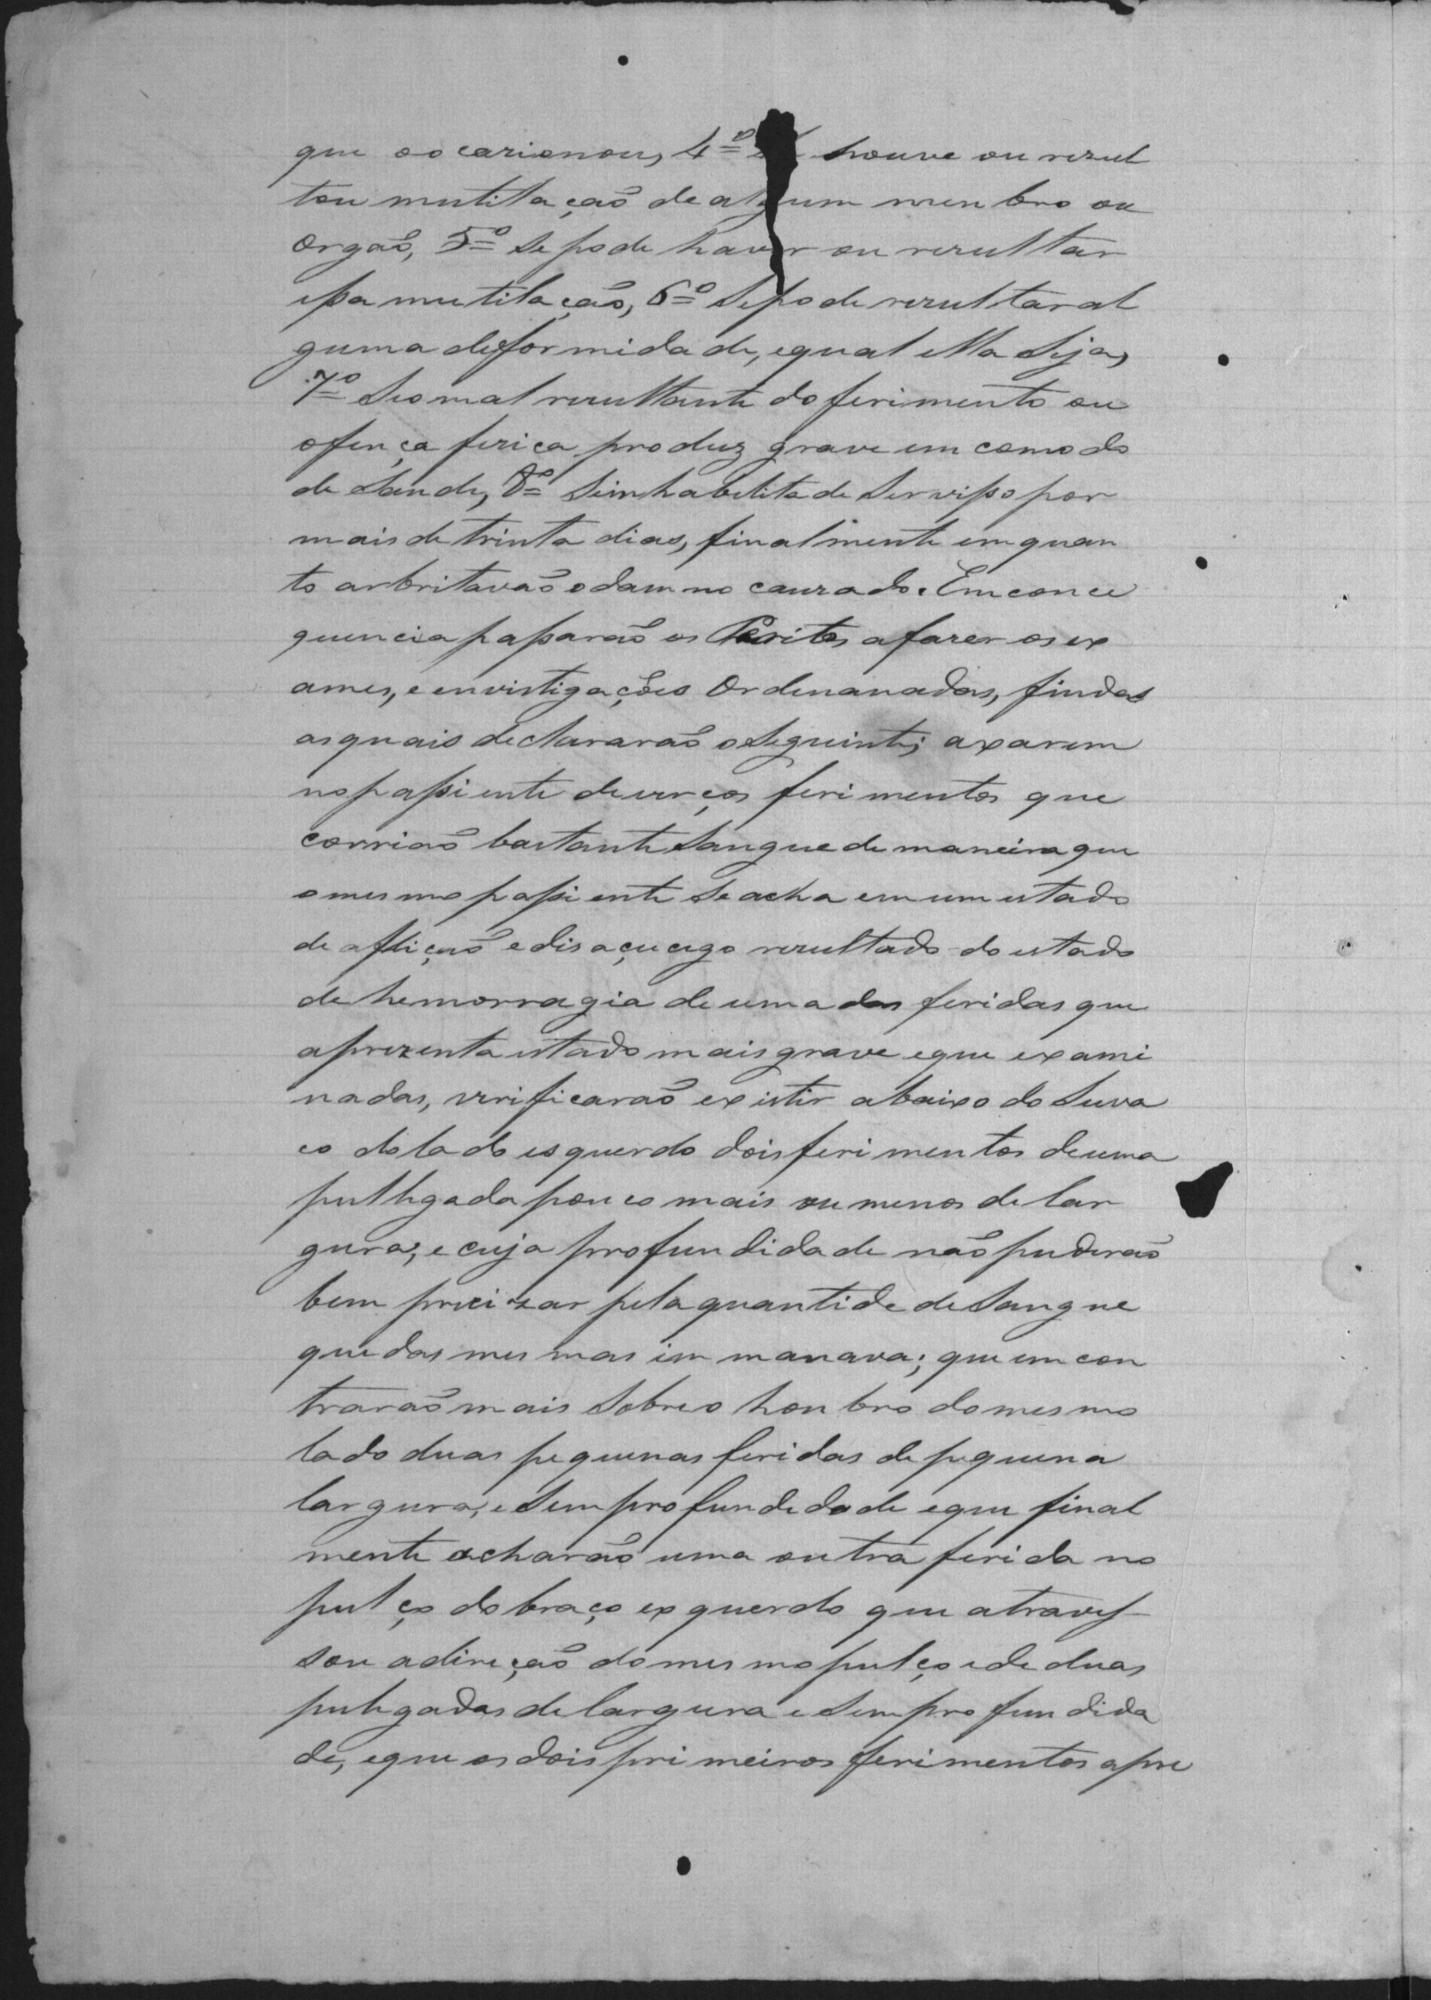 que o ocazionou, 4º houve ou rezul
tou mutilação de algum menbro ou
orgaõ, 5º se pode haver ou rezultar
essa mutilação, 6º Se pode rezultar al
guma deformidade, e qual ella Seja,
7º Se o mal rezultante do ferimento ou
ofença fezica produz grave emcomodo
de Saude, 8º Se inhabelita de Servisso por
mais de trinta dias, finalmente em quan
to arbritavaõ o damno cauzado. Em conce
quencia passaraõ os Peritos a fazer os ex
ames, e envistigações Ordenanadas, findas
as quais declararaõ o Seguinte; axarem
no passiente deverços ferimentos que
corriaõ bastante Sangue de maneira que
o mesmo passiente Se acha em um estado
de afliçaõ e disaçucego rezultado do estado
de hemorragia de uma das feridas que
aprezenta estado mais grave e que exami
nadas, verificaraõ existir abaixo do Suva
co do lado esquerdo dois ferimentos de uma
pullegada pouco mais ou menos de lar
gura, e cuja profundidade naõ puderaõ
bem precizar pela quantide de Sangue
que das mesmas immanava; que emcon
traraõ mais Sobre o honbro do mesmo
lado duas pequenas feridas de pequena
largura, e Sem profundedade e que final
mente acharaõ uma outra ferida no
pulço do braço exquerdo que atraves
sou a direçaõ do mesmo pulço e de duas
pulegadas de largura e Sem profundida
de, e que os dois primeiros ferimentos apre